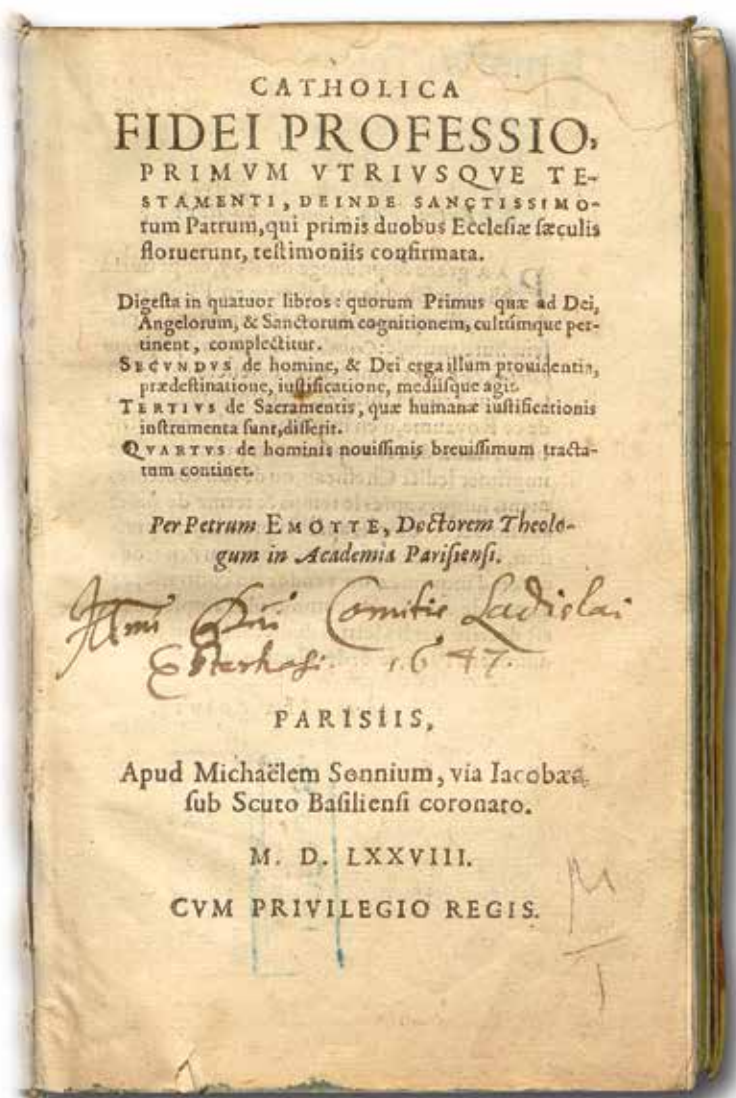 CATHOLICA
FIDEI PROFESSIO,
PRIMVM VTRIVSQVE TE-
STAMENTI, DEINDE SANCTISSIMO-
rum Patrum, qui primis duobus Ecclesiæ sæculis
floruerunt, testimoniis confirmata.
Digesta in quatuor libros: quorum Primus quæ ad Dei,
Angelorum, & Sanctorum cognitionem, cultúmque per-
tinent, complectitur.
SECVNDVS de homine, & Dei erga illum prouidentia,
prædestinatione, iustificatione, mediisque agit.
TERTIVS de Sacramentis, quæ humanæ iustificationis
instrumenta sunt, disserit.
QVARTVS de hominis nouissimis breuissimum tracta-
tum continet.
Per Petrum EMOTTE, Doctorem Theolo-
gum in Academia Parisiensi.
Comitis Ladislai
Esterhasi. 1647.
PARISIIS,
Apud Michaëlem Sonnium, via Iacobæa,
sub Scuto Basiliensi coronato.
M. D. LXXVIII.
CVM PRIVILEGIO REGIS.
M
T